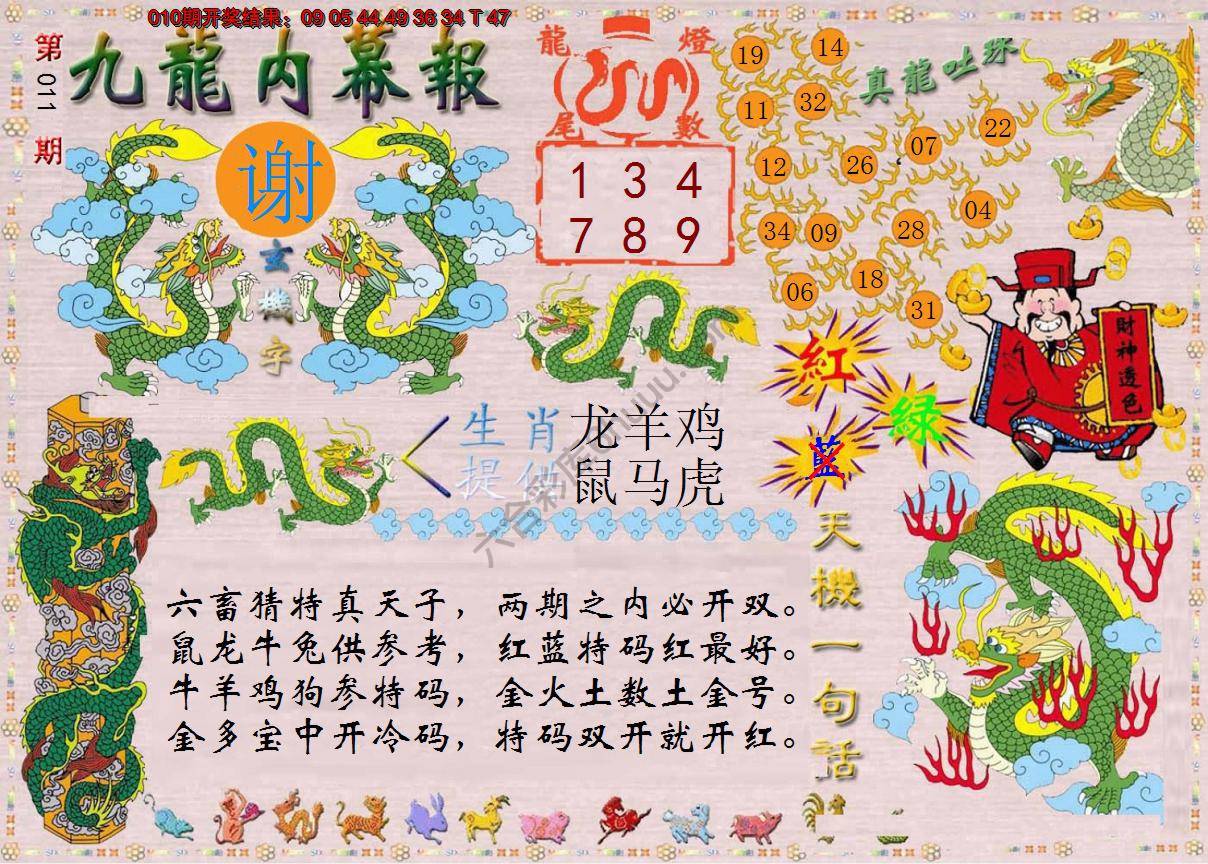 010期开奖结果：09 05 44 49 36 34 T 47
第011期
九龍内幕報
谢
玄機字
龍燈尾數
1 3 4
7 8 9
真龍吐珠
19 14
11 32
12 26 07 22
34 09 28 04
06 18 31
紅
綠
藍
財神透色
生肖提供
龙羊鸡
鼠马虎
六畜猜特真天子，两期之内必开双。
鼠龙牛兔供参考，红蓝特码红最好。
牛羊鸡狗参特码，金火土数土金号。
金多宝中开冷码，特码双开就开红。
天機一句話